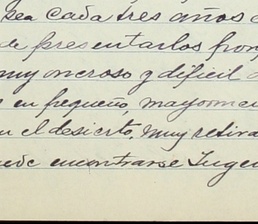 sea cada tres años
de presentarlos
muy oneroso y dificil
en pequeño, mayormen
en el desierto, muy retira
uede encontrarse Inge